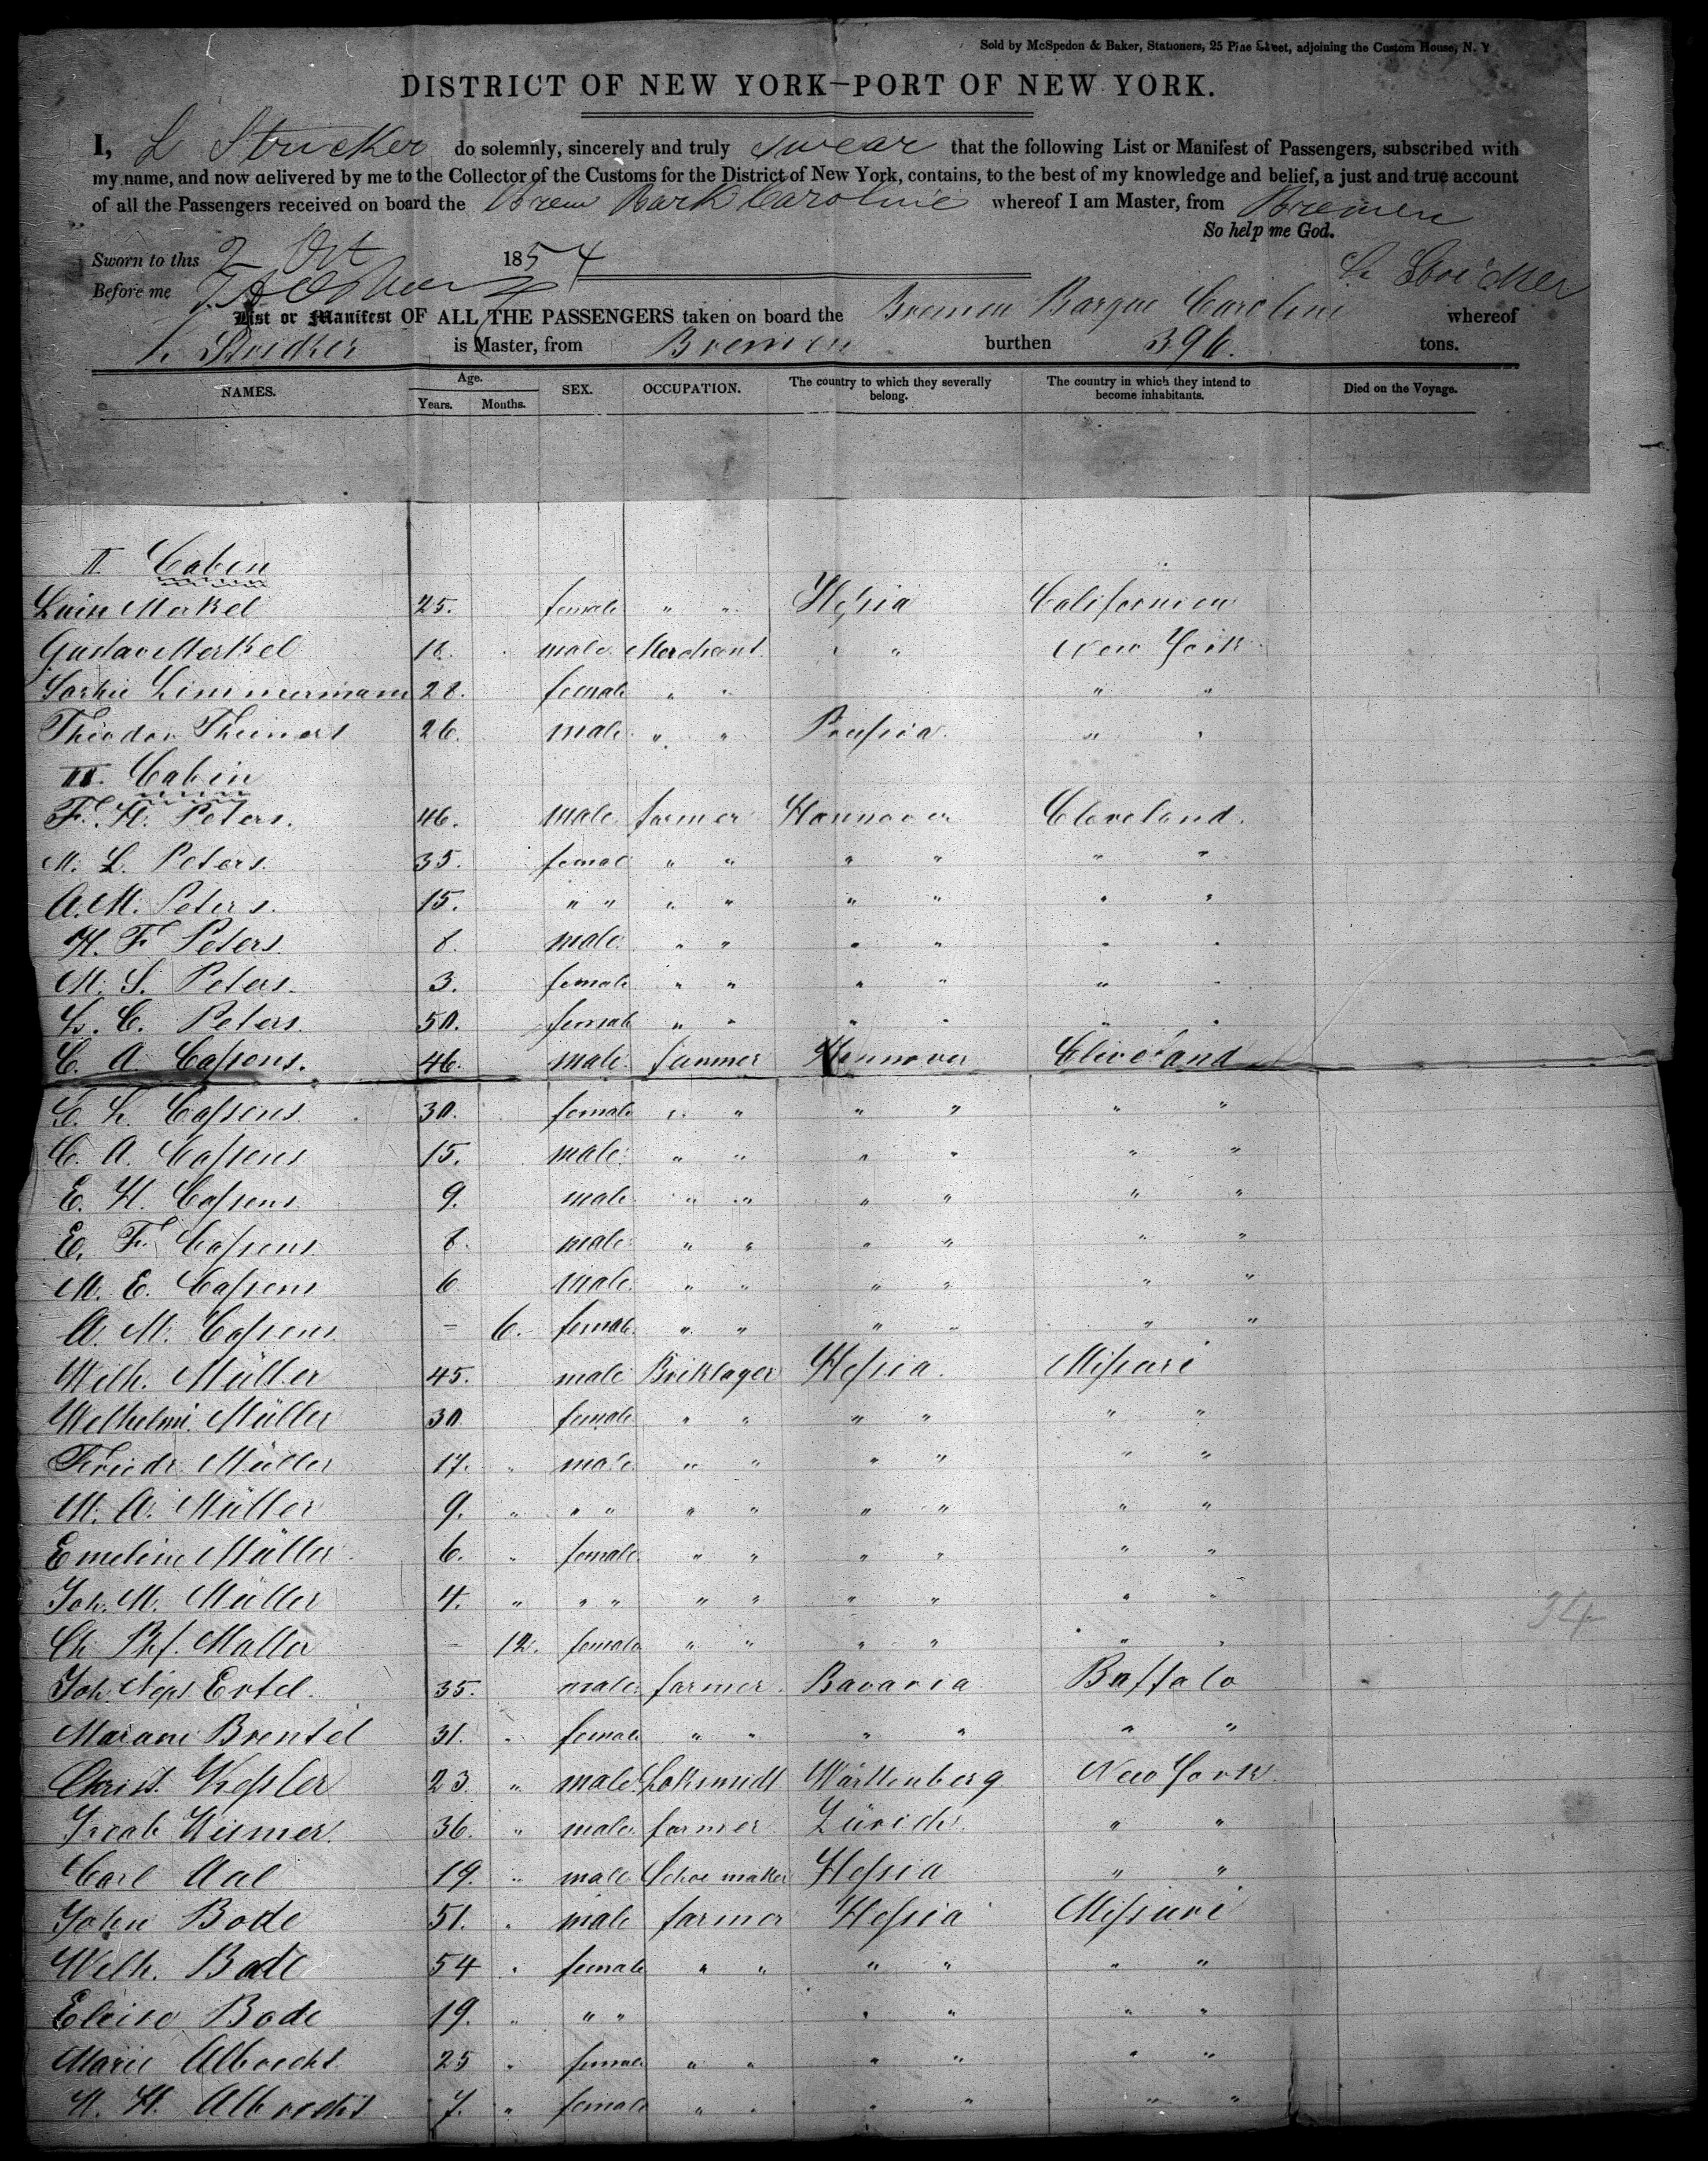 Sold by McSpedon & Baker, Stationers, 25 Pine Street, adjoining the Custom House, N. Y
DISTRICT OF NEW YORK—PORT OF NEW YORK.
I, L Stricker do solemnly, sincerely and truly swear that the following List or Manifest of Passengers, subscribed with
my name, and now delivered by me to the Collector of the Customs for the District of New York, contains, to the best of my knowledge and belief, a just and true account
of all the Passengers received on board the Brem Bark Caroline whereof I am Master, from Bremen
So help me God.
Sworn to this 2 Oct 1854
Before me
List or Manifest OF ALL THE PASSENGERS taken on board the Bremen Barque Caroline whereof
is Master, from Bremen burthen 396. tons.
NAMES. Age. Years. Months. SEX. OCCUPATION. The country to which they severally belong. The country in which they intend to become inhabitants. Died on the Voyage.
II Cabin
Merkel 25. female " " Heſsia Californien
Gustav Merkel 18. male Merchant " " New York
Zimmermann 28. female " " " "
Theodor 26. male " " Preuſsia " "
III. Cabin
F. H. Peters. 46. male farmer Hannover Cleveland.
M. L. Peters. 35. femal " " " " " "
A. M. Peters. 15. " " " " " " " "
H. F Peters. 8. male " " " " " "
M. S. Peters. 3. female " " " " " "
L. C. Peters. 50. female " " " " " "
C. A. Caſsens. 46. male farmer Hannover Cleveland
Caſsens 30. female " " " " " "
C. A. Caſsens 15. male " " " " " "
E. H. Caſsens 9. male " " " " " "
E. F. Caſsens 8. male " " " " " "
M. E. Caſsens 6 male " " " " " "
A. M. Caſsens – 6. female " " " " " "
Wilh. Müller 45. male Briklager Heſsia. Miſsuri
Wilhelmi. Müller 30 female " " " " " "
Friedr. Müller 17. male " " " " " "
M. A. Müller 9. " " " " " " " " "
Emeline Müller 6. " female " " " " " "
Joh. M. Müller 4. " " " " " " " " "
Ch. Müller – 12. female " " " " " "
Joh. Nept Ertel. 35. male farmer Bavaria Buffalo
Brentel 31. " female " " " " " "
Christ. Keſsler 23. " male Loksmidt Württenberg New York.
Jacob Wismer. 36. " male farmer Zürich. " "
Carl Aal 19. " male Schoe maker Heſsia " "
John Bode 51. " male farmer Heſsia Miſsuri
Wilh. Bode 54 " female " " " " " "
Bode 19. " " " " " " "
Marie Albrecht 25 " female " " " " " "
H. H. Albrecht 7. " female " " " " " "
34